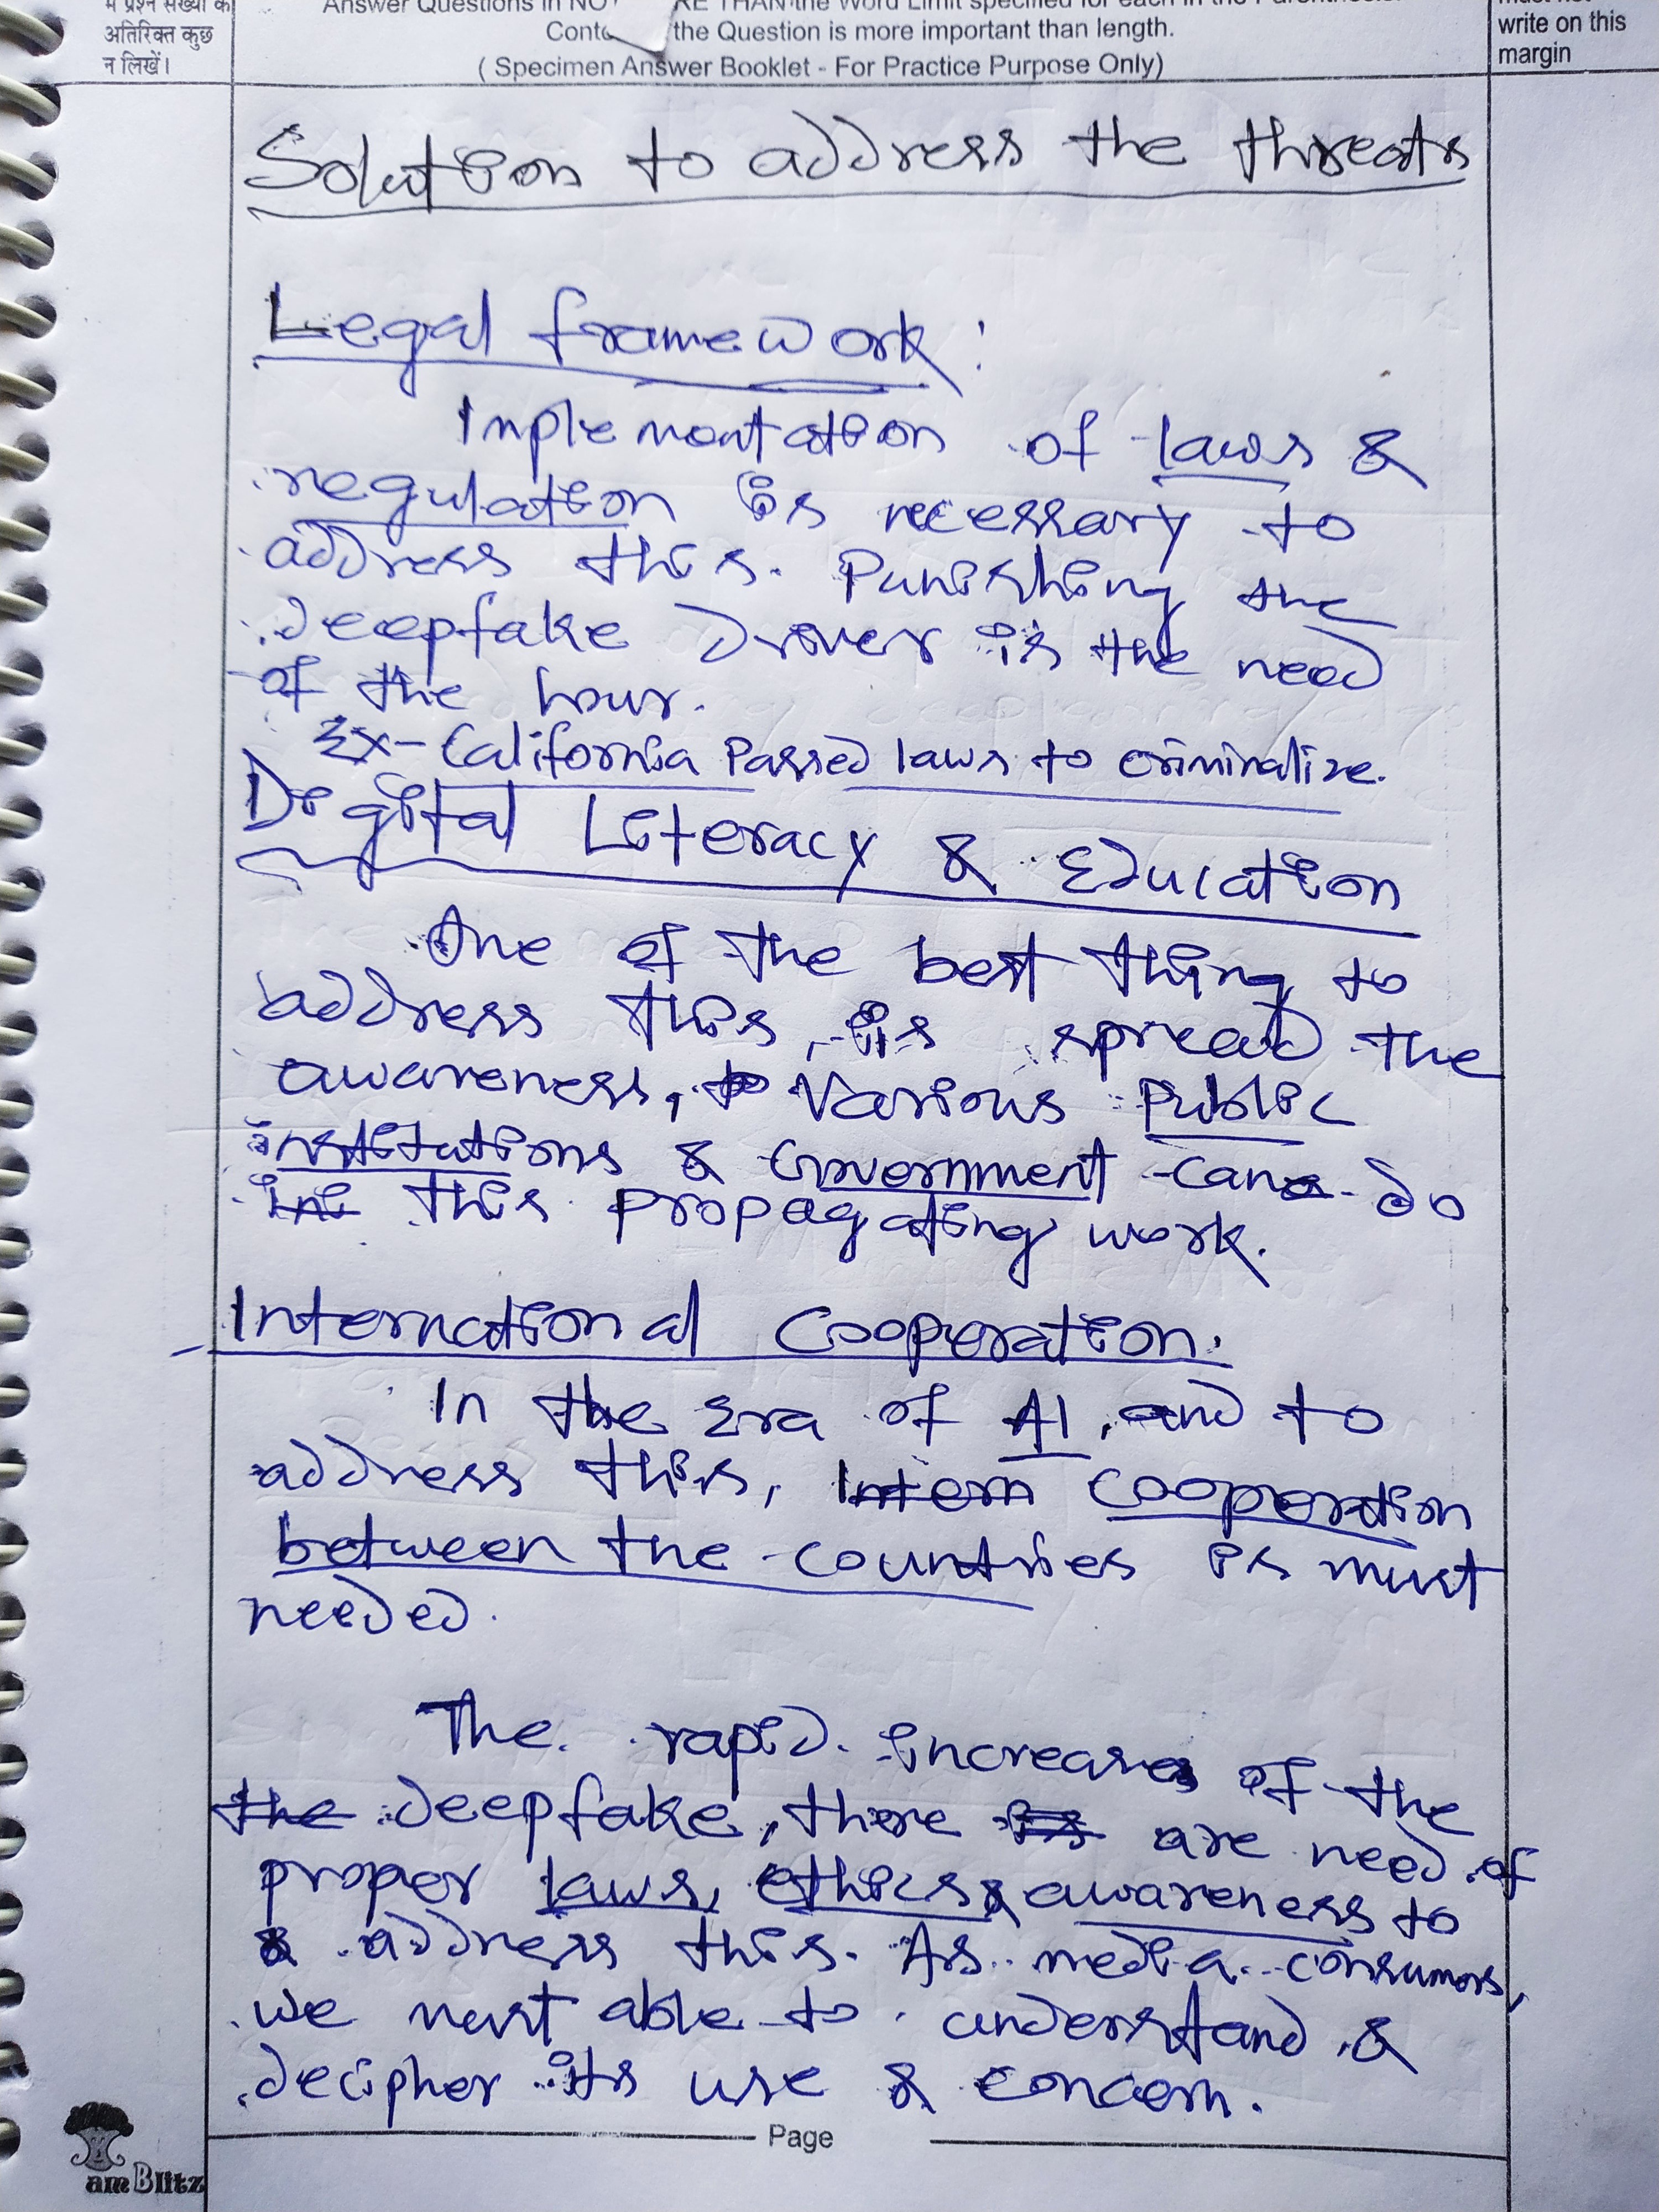 में प्रश्न संख्या के
अतिरिक्त कुछ
न लिखें।
Answer Questions in NOT THAN the Word Limit specified for each in the Parenthesis.
the Question is more important than length.
( Specimen Answer Booklet - For Practice Purpose Only)
must not
write on this
margin
Solution to address the threats
Legal framework :
Implementation of laws &
regulation is necessary to
address this. Punishing the
deepfake driver is the need
of the hour.
Ex- California Passed laws to criminalize.
Digital Literacy & Education
One of the best thing to
address this, is spread the
awareness, Various Public
institutions & Government can do
this propagating work.
International Cooperation.
In the Era of AI, and to
address this, Intern cooperation
between the countries is must
needed.
The rapid increase of the
the deepfake, there is are need of
proper laws, ethics & awareness to
address this. As media consumers,
we must able to understand &
decipher its use & concern.
Page
am Blitz